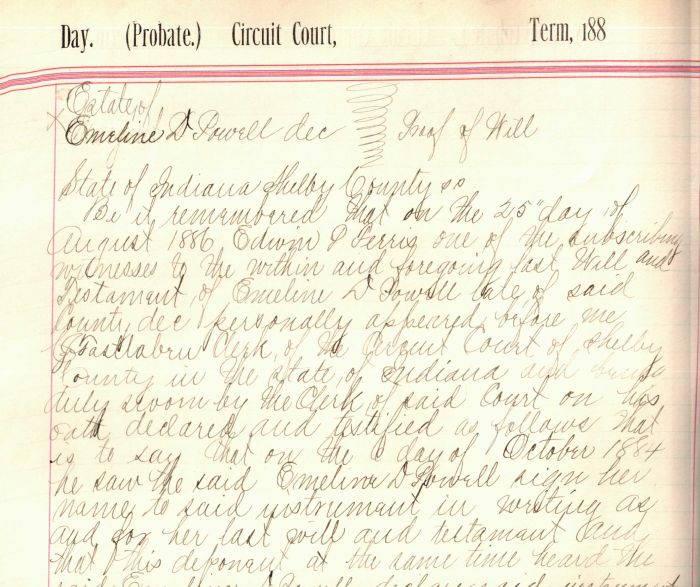 Day. (Probate.) Circuit Court, Term, 188
Estate of
Emeline D Powell dec Proof of Will
State of Indiana Shelby County ss
Be it remembered that on the 25" day of
August 1886 Edwin P Ferris one of the subscribing
witnesses to the within and foregoing last Will and
Testament of Emeline D Powell late of said
County dec personally appeared before me
Clerk of the Circuit Court of Shelby
County in the state of Indiana and being
duly sworn by the Clerk of said Court on his
oath declared and testified as follows that
is to say that on the day of October 1884
he saw the said Emeline D Powell sign her
name to said instrument in writing as
and for her last will and testament and
that this deponent at the same time heard the
said Emeline D Powell declare said instrument